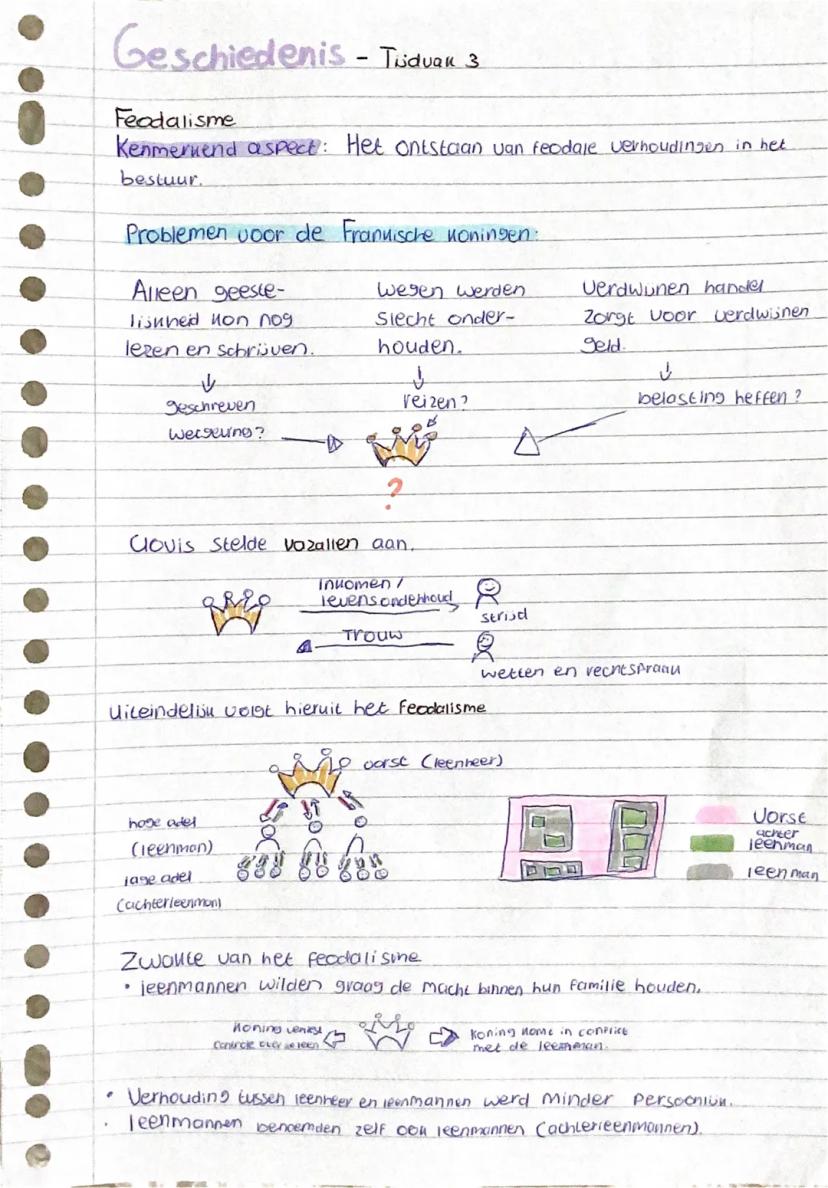 Geschiedenis - Tijdvak 3
Feodalisme
Kenmerkend aspect: Het ontstaan van feodale verhoudingen in het
bestuur.
Problemen voor de Frankische koningen:
Alleen geeste-
lijkheid kon nog
lezen en schrijven.
geschreven
wetgeving?
wegen werden
slecht onder-
houden.
reizen?
verdwijnen handel
zorgt voor verdwijnen
geld.
belasting heffen?
?
Clovis stelde vazallen aan.
Inkomen /
levensonderhoud
strijd
Trouw
wetten en rechtspraak
Uiteindelijk volgt hieruit het feodalisme
vorst (leenheer)
hoge adel
(leenman)
lage adel
(achterleenman)
Vorst
achter
leenman
leenman
Zwakte van het feodalisme
• leenmannen wilden graag de macht binnen hun familie houden.
Koning verliest
controle over
Koning komt in conflict
met de leenman.
• Verhouding tussen leenheer en leenmannen werd minder persoonlijk.
• leenmannen benoemden zelf ook leenmannen (achterleenmannen).